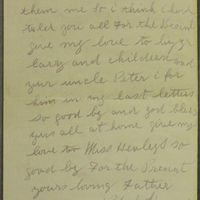 them me So i think i have
toled you all For the Preasent
give my love to
lary and children and
your uncle Peter i for
him in my last letters
so good by and god bless
yous all at home give my
love to Miss Henleys so
good by For the Present
yours loving Father